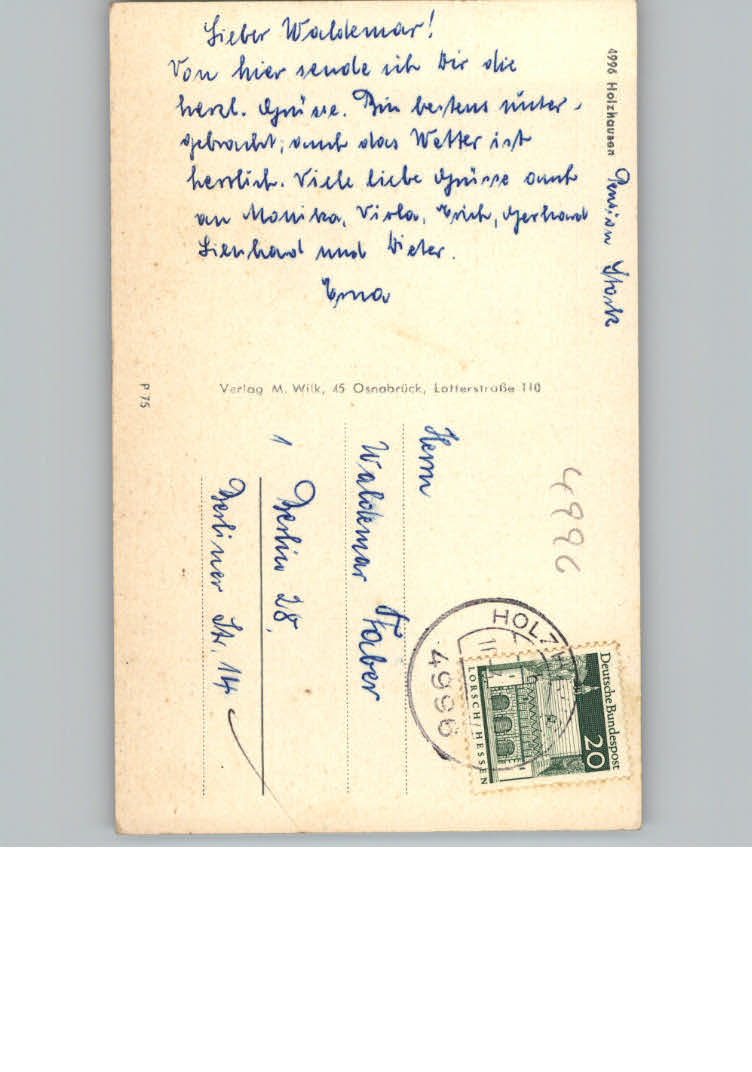 Lieber Waldemar!
Von hier sende ich Dir die
herzl. Grüsse. Bin bestens unter-
gebracht, auch das Wetter ist
herrlich. Viele liebe Grüsse auch
an Monika, Viola, Erich, Gerhard
Lienhard und Dieter.
Erna
4996 Holzhausen
Pension Stork
Verlag M. Wilk, 45 Osnabrück, Lotterstraße 110
P 75
Herrn
Waldemar Faber
1 Berlin 28,
Berliner Str. 14
4996
HOLZH
4996
Deutsche Bundespost
20
LORSCH/HESSEN